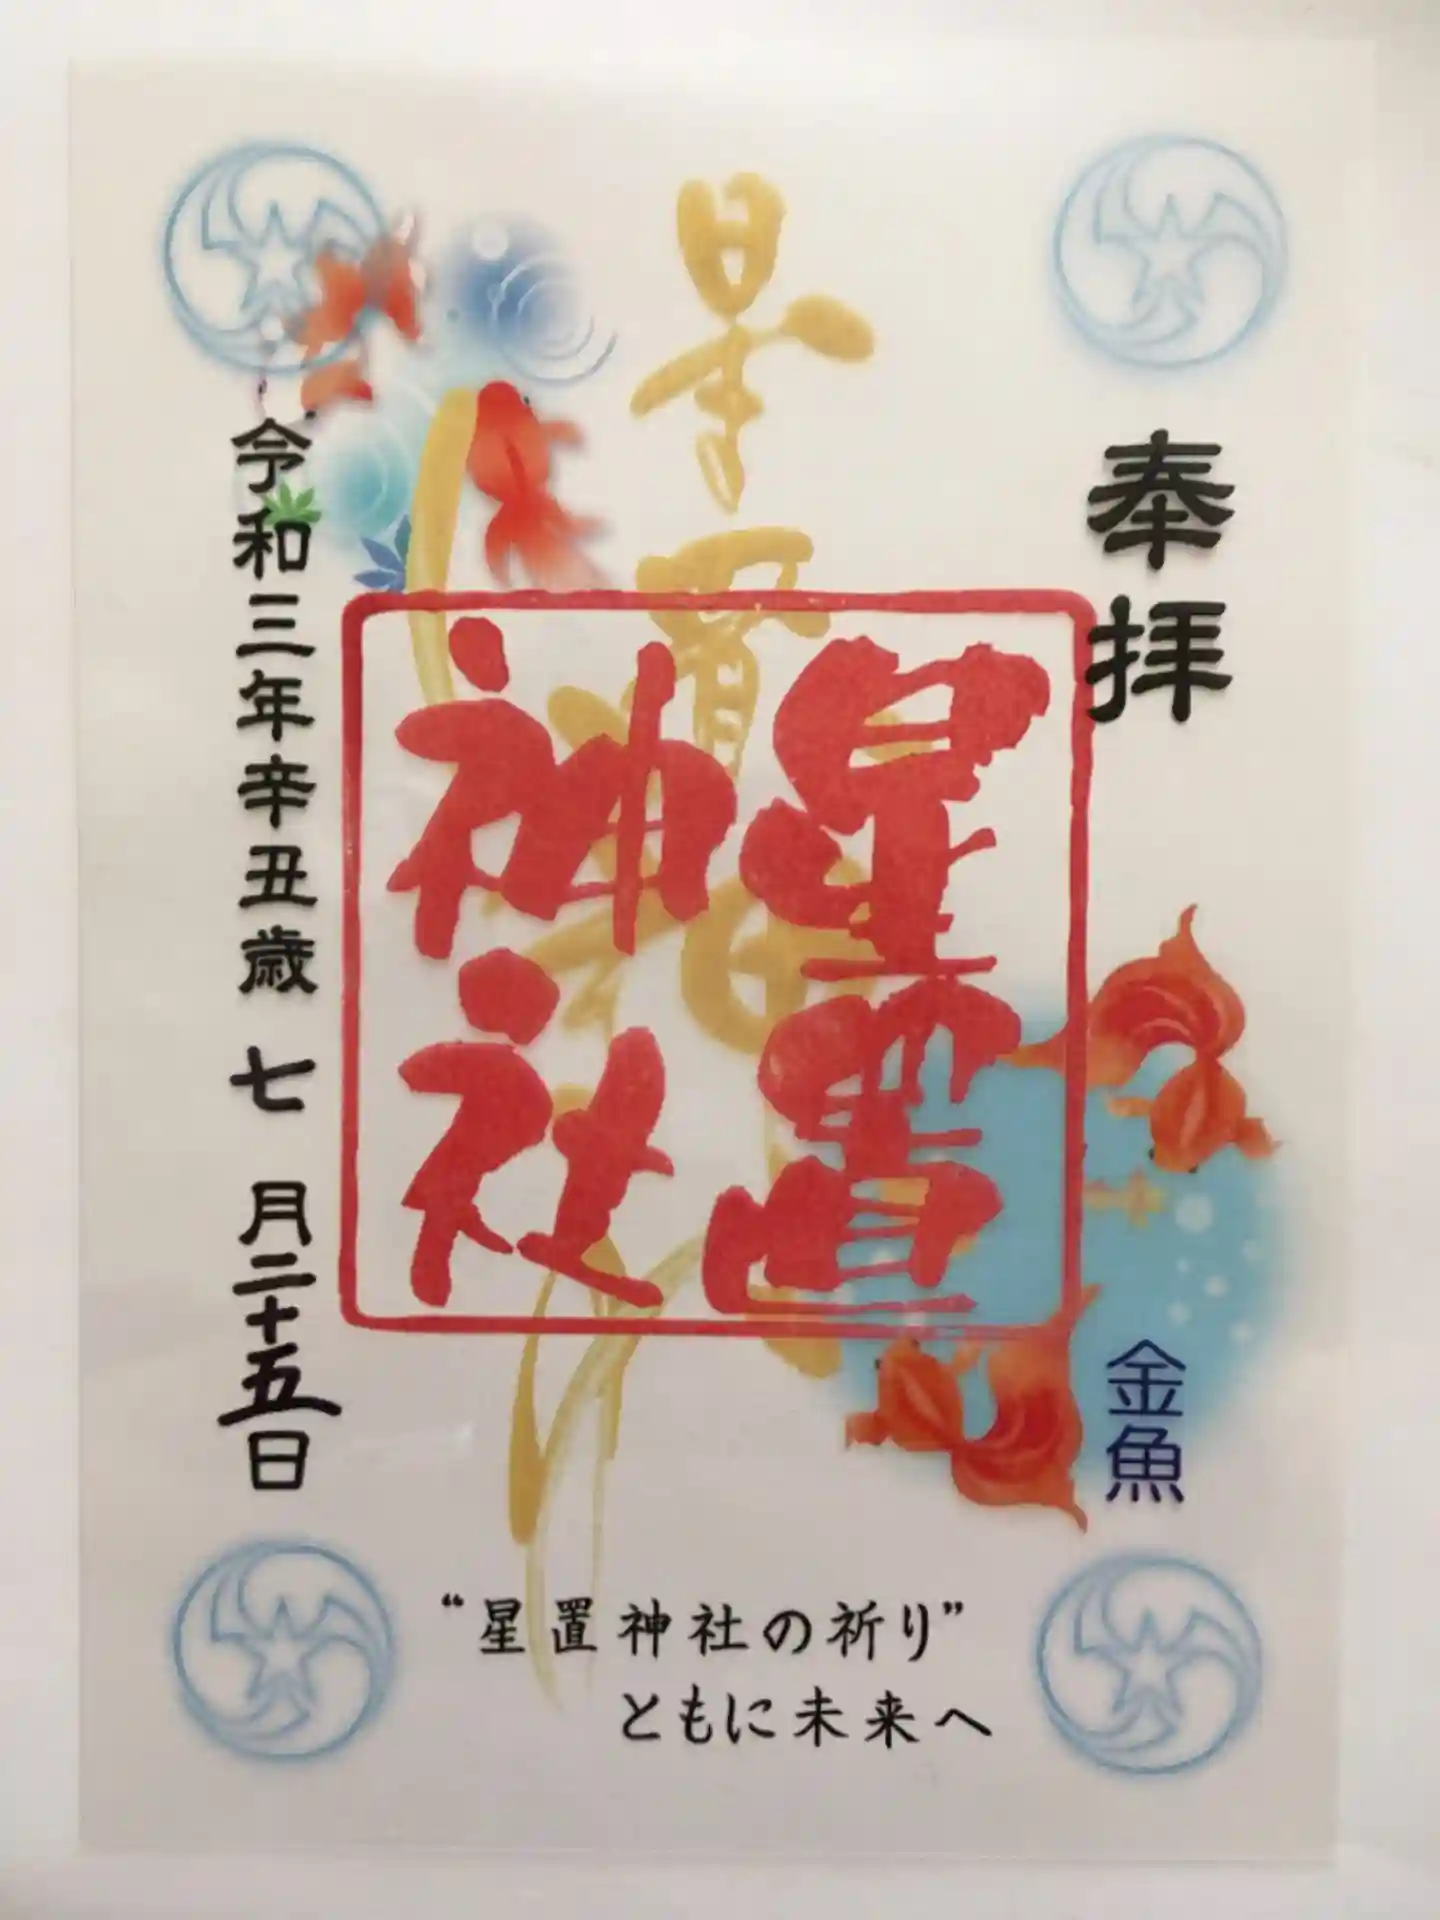 奉拝
金魚
星置神社
星置
神社
令和三年辛丑歳 七 月二十五日
“星置神社の祈り”
ともに未来へ